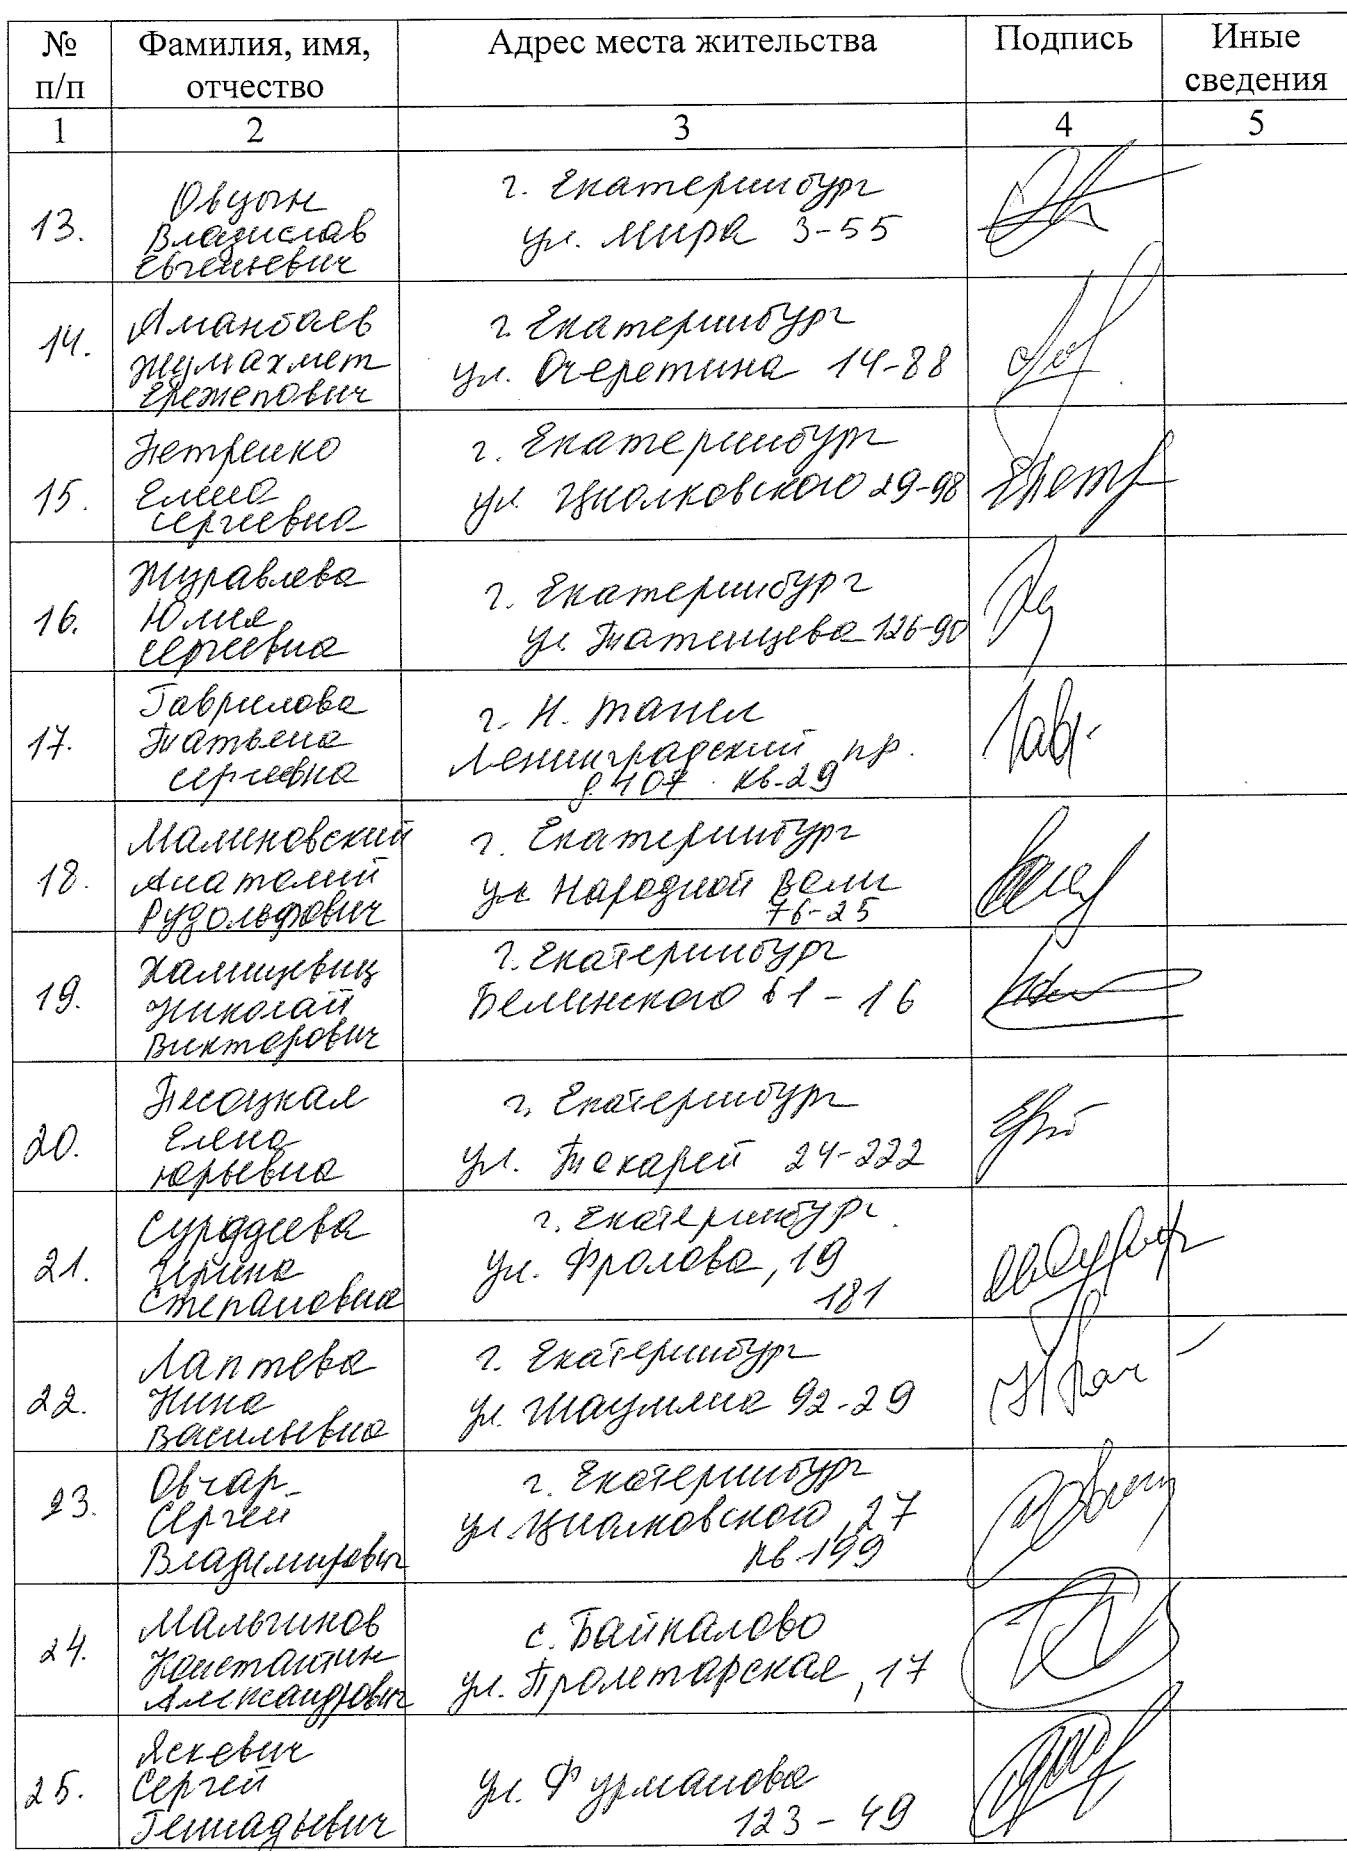 № п/п
Фамилия, имя, отчество
Адрес места жительства
Подпись
Иные сведения
1 2 3 4 5
13.
Овцын
Владислав
Евгеньевич
г. Екатеринбург
ул. Мира 3-55
14.
Аманбаев
Жумахмет
Ережепович
г. Екатеринбург
ул. Очеретина 14-88
15.
Петренко
Елена
Сергеевна
г. Екатеринбург
ул. Циолковского 29-98
16.
Журавлева
Юлия
Сергеевна
г. Екатеринбург
ул. Татищева 126-90
17.
Гаврилова
Татьяна
Сергеевна
г. Н. Тагил
Ленинградский пр.
д. 107 кв. 29
Гавр
18.
Малиновский
Анатолий
Рудольфович
г. Екатеринбург
ул. Народной Воли
76-25
19.
Халицевич
Николай
Викторович
г. Екатеринбург
Белинского 61-16
20.
Песоцкая
Елена
Юрьевна
г. Екатеринбург
ул. Токарей 24-222
21.
Ирина
Степановна
г. Екатеринбург
ул. Фролова, 19
181
22.
Лаптева
Нина
Васильевна
г. Екатеринбург
ул. Шаумяна 92-29
23.
Овчар
Сергей
Владимирович
г. Екатеринбург
ул. Циолковского, 27
кв 199
24.
Мальчиков
Константин
Александрович
с. Байкалово
ул. Пролетарская, 17
25.
Яскевич
Сергей
Геннадьевич
ул. Фурманова
123-49